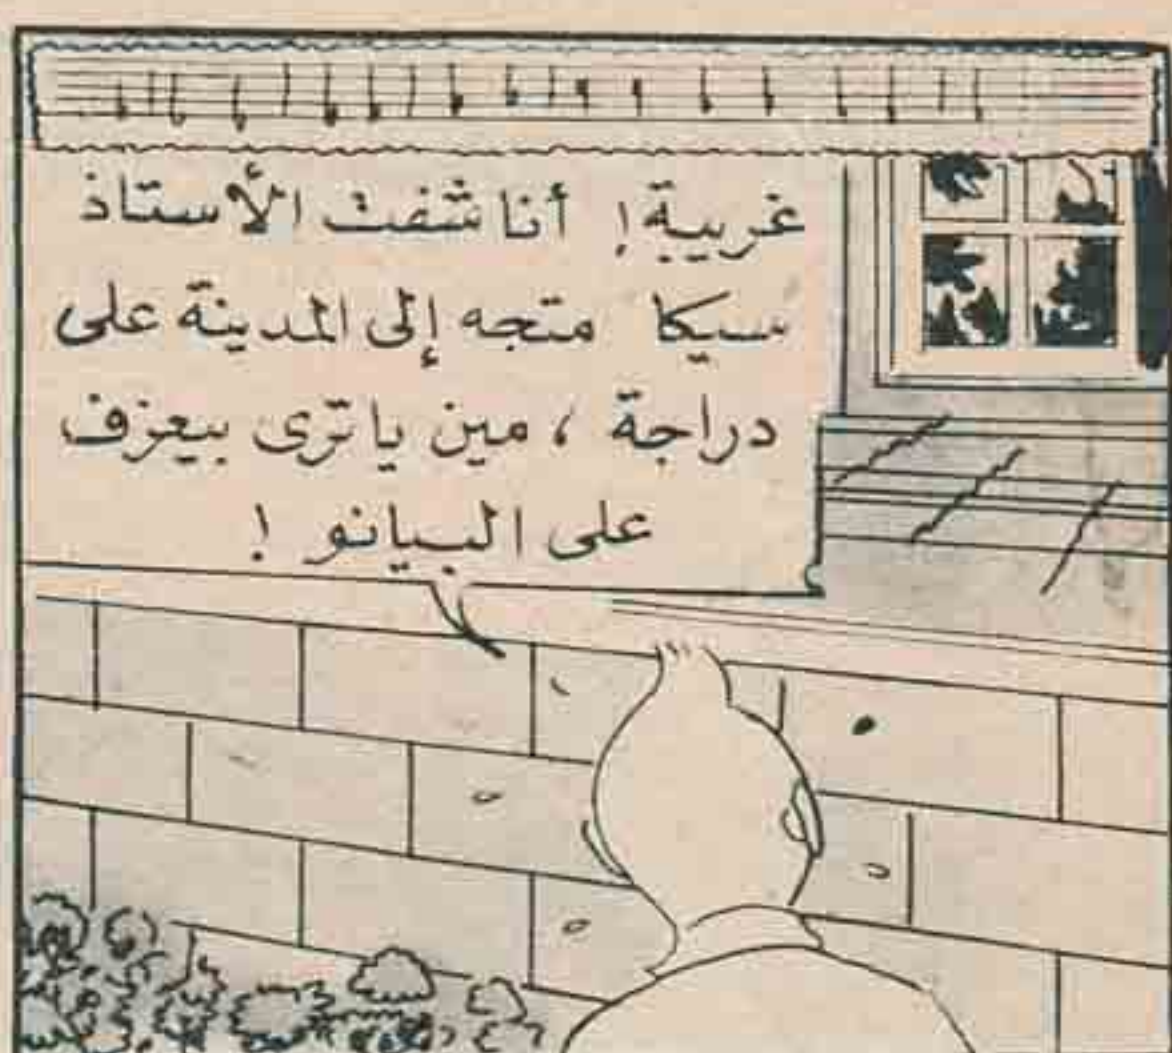 غريبة! أنا شفت الأستاذ
سيكا متجه إلى المدينة على
دراجة ، مين ياترى بيعزف
على البيانو !